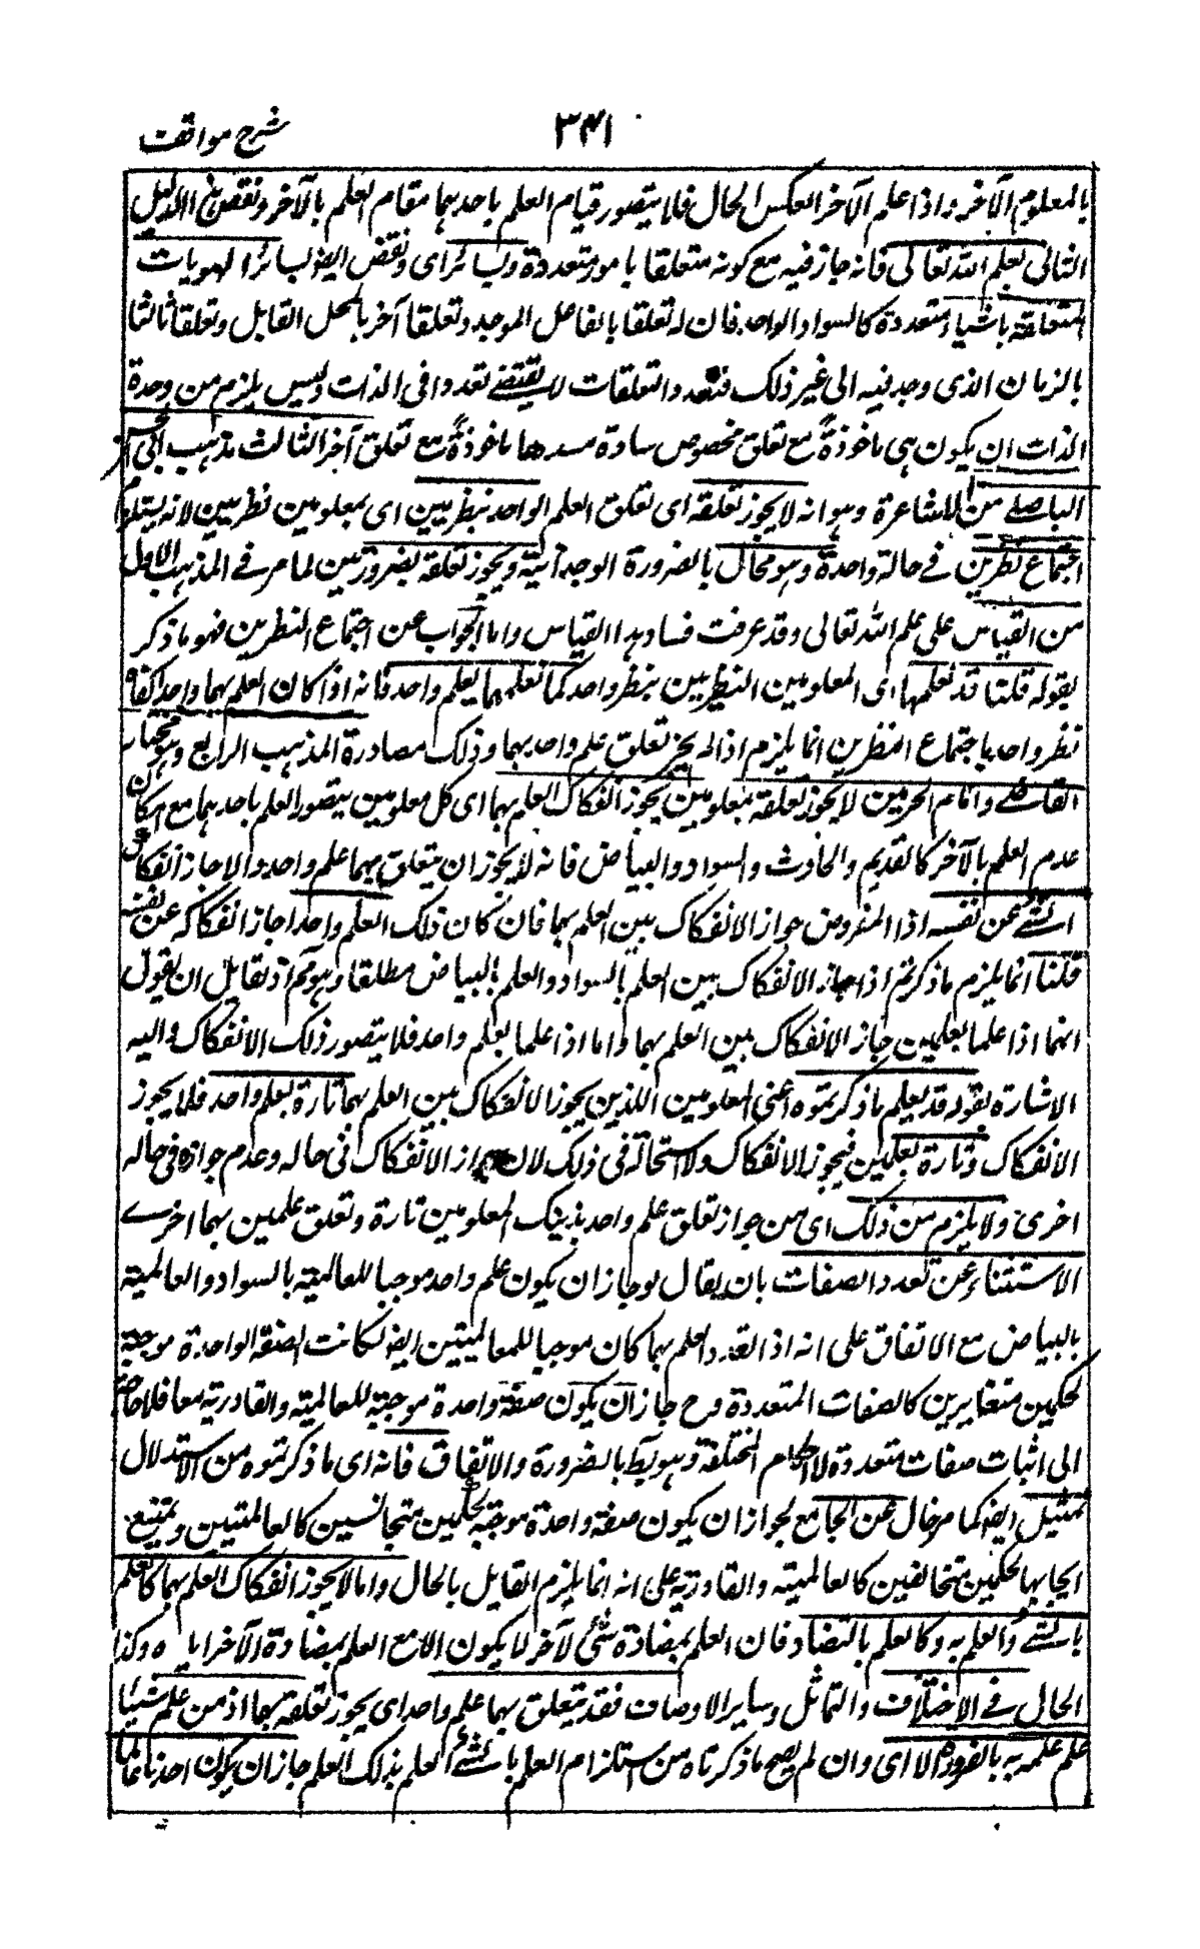 شرح مواقف
۳۴۱
بالمعلوم الآخر واذا علم الآخر انعكس الحال فلا يتصور قيام العلم باحدهما مقام العلم بالآخر ونقض الدليل
الثانى بعلم الله تعالى فانه جاز فيه مع كونه متعلقا بامور متعددة وبسائر اى ونقض ايضا بسائر الهويات
المتعلقة باشياء متعددة كالسواد الواحد فان له تعلقا بالفاعل الموجد وتعلقا آخر بالمحل القابل وتعلقا ثالثا
بالزمان الذى وجد فيه الى غير ذلك فتعدد التعلقات لا يقتضى تعددا فى الذات وليس يلزم من وحدة
الذات ان يكون هى ماخوذة مع تعلق مخصوص سادة مسدها ماخوذة مع تعلق آخر الثالث مذهب ابى الحسن
الباهلى من الاشاعرة وهو انه لا يجوز تعلقه اى تعلق العلم الواحد بنظريين اى بمعلومين نظريين لانه يستلزم
اجتماع نظرين فى حالة واحدة وهو محال بالضرورة الوجدانية ويجوز تعلقه بضروريين لما مر فى المذهب الاول
من القياس على علم الله تعالى وقد عرفت فساد هذا القياس واما الجواب عن اجتماع النظرين فهو ما ذكر
بقوله قلنا قد نعلمهما اى المعلومين النظريين بنظر واحد كما نعلمهما بعلم واحد فانه اذا كان العلم بهما واحدا كفاه
نظر واحد واجتماع النظرين انما يلزم اذا لم يجز تعلق علم واحد بهما وذلك مصادرة المذهب الرابع وهو مختار
القاضى وامام الحرمين لا يجوز تعلقه بمعلومين يجوز انفكاك العلم بهما اى كل معلومين يتصور العلم باحدهما مع امكان
عدم العلم بالآخر كالقديم والحادث والسواد والبياض فانه لا يجوز ان يتعلق بهما علم واحد والا جاز انفكاك
الشئ عن نفسه اذ المفروض جواز الانفكاك بين العلم بهما فان كان ذلك العلم واحدا جاز انفكاكه عن نفسه
قلنا انما يلزم ما ذكرتم اذا جاز الانفكاك بين العلم بالسواد والعلم بالبياض مطلقا وهو مم اذ لقائل ان يقول
انهما اذا علما بعلمين جاز الانفكاك بين العلم بهما واما اذا علما بعلم واحد فلا يتصور ذلك الانفكاك واليه
الاشارة بقوله قد يعلم ما ذكرتموه اعنى المعلومين اللذين يجوز الانفكاك بين العلم بهما تارة بعلم واحد فلا يجوز
الانفكاك وتارة بعلمين فيجوز الانفكاك ولا استحالة فى ذلك لان جواز الانفكاك فى حاله وعدم جوازه فى حاله
اخرى ولا يلزم من ذلك اى من جواز تعلق علم واحد بذينك المعلومين تارة وتعلق علمين بهما اخرے
الاستغناء عن تعدد الصفات بان يقال لو جاز ان يكون علم واحد موجبا للعالمية بالسواد والعالمية
بالبياض مع الاتفاق على انه اذا تعدد العلم بهما كان موجبا للعالميتين ايضا لكانت الصفة الواحدة موجبة
لحكمين متغايرين كالصفات المتعددة وح جاز ان يكون صفة واحدة موجبة للعالمية والقادرية معا فلا حاجة
الى اثبات صفات متعددة للاحكام المختلفة وهو بط بالضرورة والاتفاق فانه اى ما ذكرتموه من الاستدلال
تمثيل ايضا كما مر خال عن الجامع لجواز ان يكون صفة واحدة موجبة لحكمين متجانسين كالعالميتين ويمتنع
ايجابها لحكمين متخالفين كالعالمية والقادرية على انه انما يلزم القايل بالحال واما لا يجوز انفكاك العلم بهما كالعلم
بالشئ والعلم به وكالعلم بالتضاد فان العلم بمضادة شئ لآخر لا يكون الا مع العلم بمضادة الآخر اياه وكذا
الحال فى الاختلاف والتماثل وساير الاوصاف فقد يتعلق بهما علم واحد اى يجوز تعلقه بهما اذ من علم شيئا
علم علمه به بالضرورة والا اى وان لم يصح ما ذكرناه من استلزام العلم بالشئ العلم بذلك العلم جاز ان يكون احدنا عالما